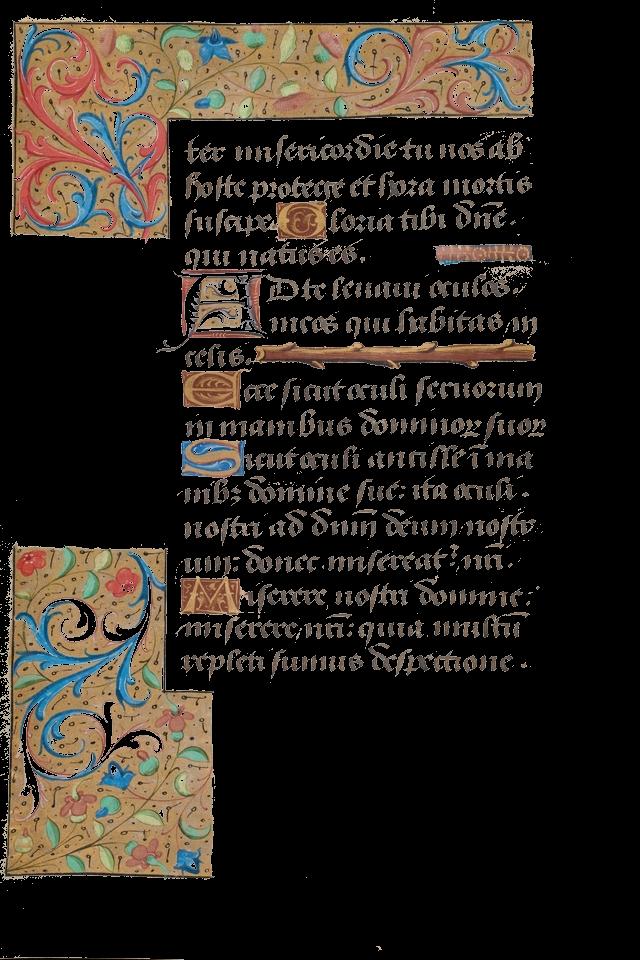 ter misericordie tu nos ab
hoste protege et hora mortis
suscipe. Gloria tibi dñe.
qui natus es.
AD te levavi oculos.
meos qui habitas in
celis.
Ecce sicut oculi servorum
in manibus dominoꝝ suoꝝ
Sicut oculi ancille ĩ ma
nibꝫ domine sue: ita oculi.
nostri ad dnm̃ deum nostr
um: donec misereatᷣ nr̃i.
Miserere nostri domine:
miserere nr̃i: quia multũ
repleti sumus despectione.